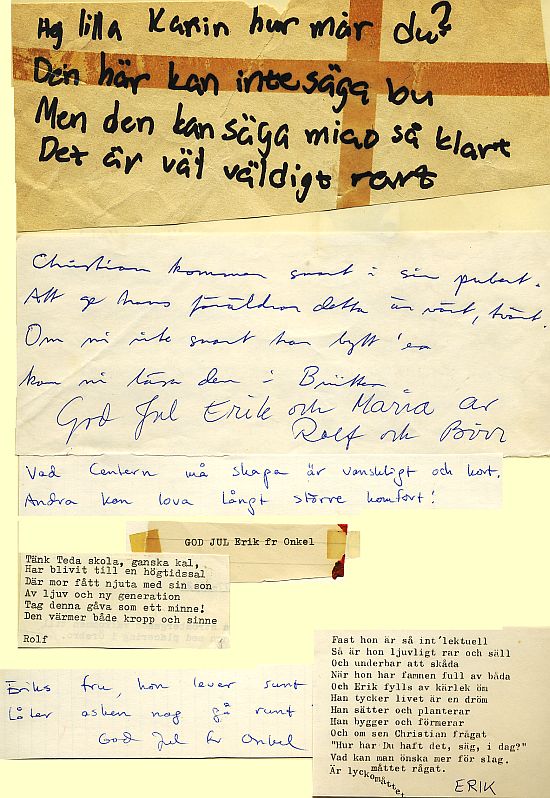 Hej lilla Karin hur mår du?
Den här kan inte säga bu
Men den kan säga miao så klart
Det är väl väldigt rart
Christian kommer snart i sin pubert.
Att ge hans föräldrar detta är värt,
Om ni inte snart har bytt 'en
kan ni lära den i
God Jul Erik och Maria av
Rolf och
Vad Centern må skapa är vanskligt och kort.
Andra kan lova långt större komfort!
GOD JUL Erik fr Onkel
Tänk Teda skola, ganska kal,
Har blivit till en högtidssal
Där mor fått njuta med sin son
Av ljuv och ny generation
Tag denna gåva som ett minne!
Den värmer både kropp och sinne
Rolf
Eriks fru, hon lever sunt
Låter asken nog gå runt
God Jul fr Onkel
Fast hon är så int'lektuell
Så är hon ljuvligt rar och säll
Och underbar att skåda
När hon har famnen full av båda
Och Erik fylls av kärlek öm
Han tycker livet är en dröm
Han sätter och planterar
Han bygger och förmerar
Och om sen Christian frågat
"Hur har Du haft det, säg, i dag?"
Vad kan man önska mer för slag.
Är lyckomåttet, måttet rågat.
ERIK